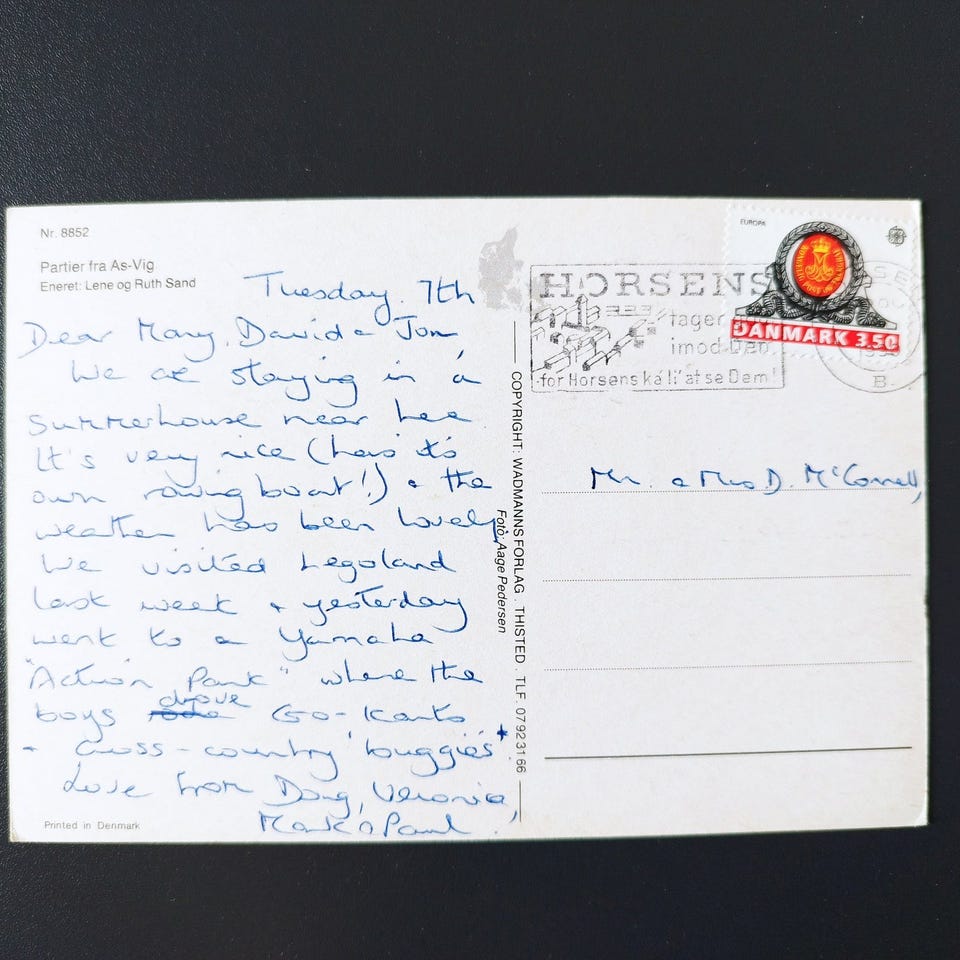 Nr. 8852
Partier fra As-Vig
Eneret: Lene og Ruth Sand
Tuesday. 7th
Dear Mary, David & Jon,
We are staying in a
summerhouse near here.
It's very nice (has it's
own rowing boat!) & the
weather has been lovely.
We visited Legoland
last week & yesterday
went to a Yamaha
"Action Park" where the
drove
boys rode Go-Karts
+ cross-country 'buggies'
Love from Doug, Veronica,
Mark & Paul.
Printed in Denmark
COPYRIGHT: WADMANNS FORLAG . THISTED . TLF. 07923166
Foto: Aage Pedersen
HORSENS
tager
imod Dem
-for Horsens ka' li' at se Dem!
B.
EUROPA
DANMARK 3.50
Mr. & Mrs D. McConnell,